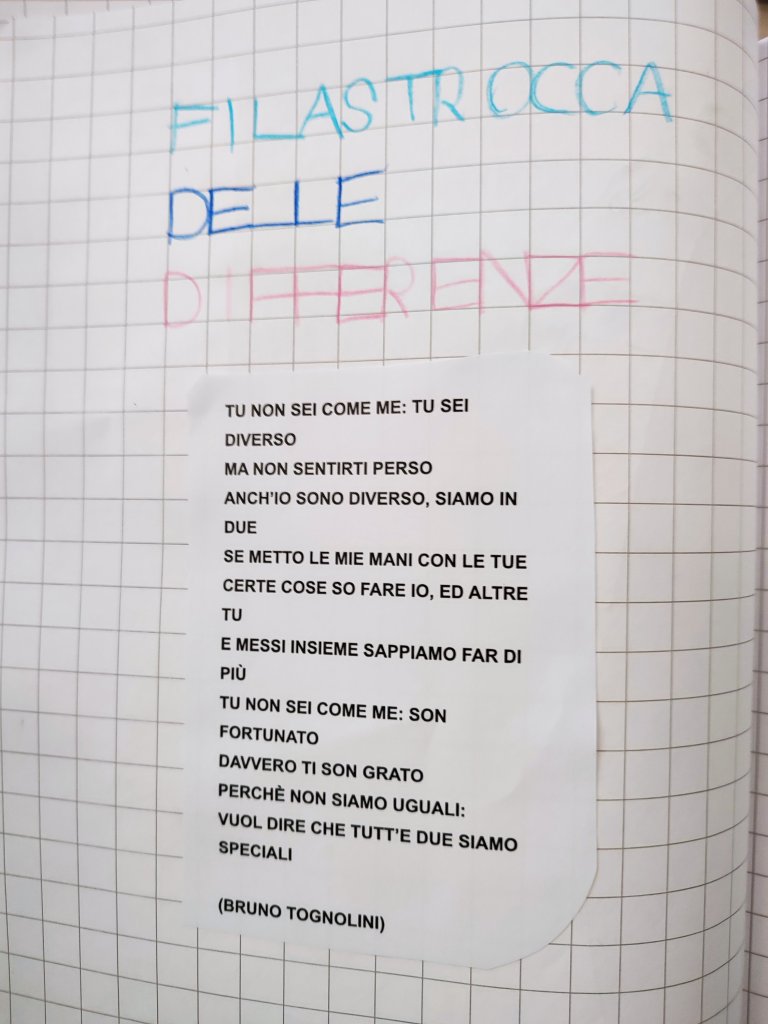 FILASTROCCA
DELLE
DIFFERENZE
TU NON SEI COME ME: TU SEI
DIVERSO
MA NON SENTIRTI PERSO
ANCH'IO SONO DIVERSO, SIAMO IN
DUE
SE METTO LE MIE MANI CON LE TUE
CERTE COSE SO FARE IO, ED ALTRE
TU
E MESSI INSIEME SAPPIAMO FAR DI
PIÙ
TU NON SEI COME ME: SON
FORTUNATO
DAVVERO TI SON GRATO
PERCHÈ NON SIAMO UGUALI:
VUOL DIRE CHE TUTT'E DUE SIAMO
SPECIALI
(BRUNO TOGNOLINI)